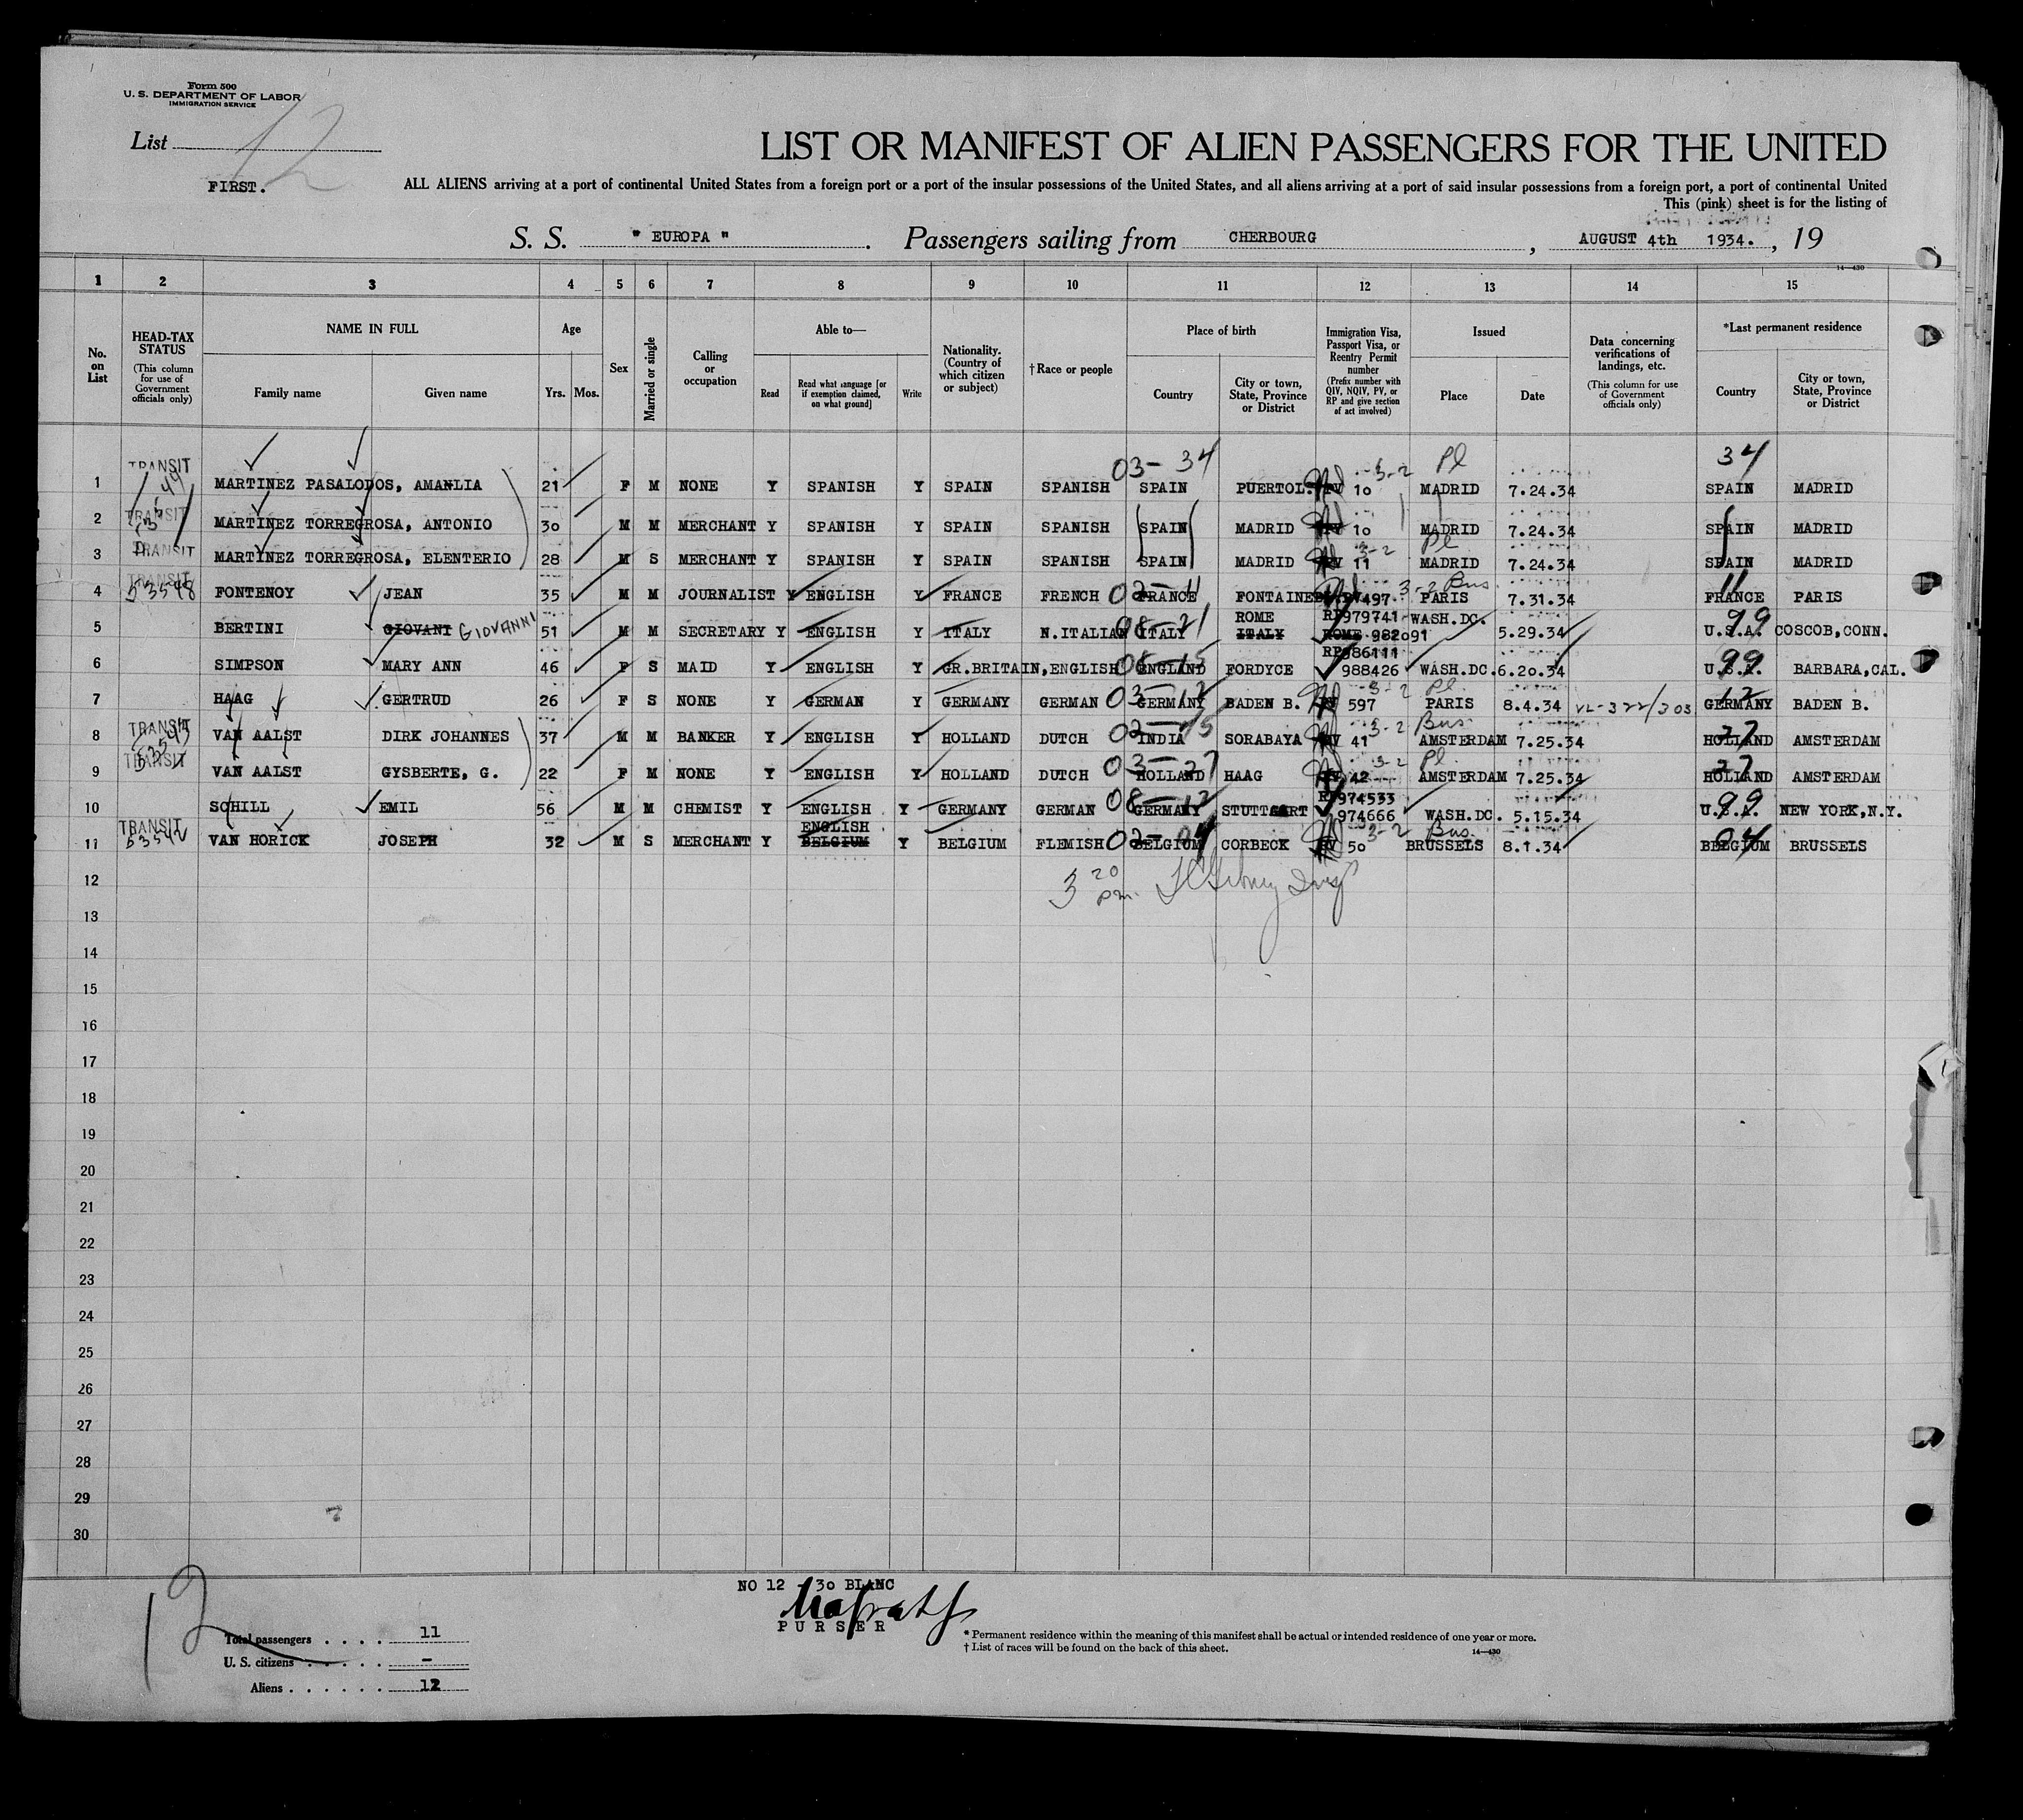 Form 500
U. S. DEPARTMENT OF LABOR
IMMIGRATION SERVICE
List 12
FIRST.
LIST OR MANIFEST OF ALIEN PASSENGERS FOR THE UNITED
ALL ALIENS arriving at a port of continental United States from a foreign port or a port of the insular possessions of the United States, and all aliens arriving at a port of said insular possessions from a foreign port, a port of continental United
This (pink) sheet is for the listing of
S. S. " EUROPA " . Passengers sailing from CHERBOURG , AUGUST 4th 1934. , 19
14—430
1 2 3 4 5 6 7 8 9 10 11 12 13 14 15
No. on List
HEAD-TAX STATUS (This column for use of Government officials only)
NAME IN FULL
Family name Given name
Age
Yrs. Mos.
Sex
Married or single
Calling or occupation
Able to—
Read Read what language [or if exemption claimed, on what ground] Write
Nationality. (Country of which citizen or subject)
†Race or people
Place of birth
Country City or town, State, Province or District
Immigration Visa, Passport Visa, or Reentry Permit number (Prefix number with QIV, NQIV, PV, or RP and give section of act involved)
Issued
Place Date
Data concerning verifications of landings, etc. (This column for use of Government officials only)
*Last permanent residence
Country City or town, State, Province or District
03- 34 3-2 Pl 34
1 TRANSIT MARTINEZ PASALODOS, AMANLIA 21 F M NONE Y SPANISH Y SPAIN SPANISH SPAIN PUERTOL. PV 10 MADRID 7.24.34 SPAIN MADRID
2 TRANSIT MARTINEZ TORREGROSA, ANTONIO 30 M M MERCHANT Y SPANISH Y SPAIN SPANISH SPAIN MADRID PV 10 MADRID 7.24.34 SPAIN MADRID
3-2 Pl
3 TRANSIT MARTINEZ TORREGROSA, ELENTERIO 28 M S MERCHANT Y SPANISH Y SPAIN SPANISH SPAIN MADRID PV 11 MADRID 7.24.34 SPAIN MADRID
02-11 3-2 Bus 11
4 TRANSIT 53548 FONTENOY JEAN 35 M M JOURNALIST Y ENGLISH Y FRANCE FRENCH FRANCE FONTAINEB 497 PARIS 7.31.34 FRANCE PARIS
08-21 ROME RP979741 WASH.DC. 99
5 BERTINI GIOVANI GIOVANNI 51 M M SECRETARY Y ENGLISH Y ITALY N.ITALIAN ITALY ITALY ROME 982091 5.29.34 U.S.A. COSCOB,CONN.
08-15 RP986111 99
6 SIMPSON MARY ANN 46 F S MAID Y ENGLISH Y GR.BRITAIN,ENGLISH ENGLAND FORDYCE 988426 WASH.DC.6.20.34 U.S.A. BARBARA,CAL.
03-12 3-2 Pl 12
7 HAAG GERTRUD 26 F S NONE Y GERMAN Y GERMANY GERMAN GERMANY BADEN B. PV 597 PARIS 8.4.34 VL-322/303 GERMANY BADEN B.
3-2 Bus. 27
8 TRANSIT VAN AALST DIRK JOHANNES 37 M M BANKER Y ENGLISH Y HOLLAND DUTCH INDIA SORABAYA PV 41 AMSTERDAM 7.25.34 HOLLAND AMSTERDAM
03-27 3-2 Pl. 27
9 TRANSIT VAN AALST GYSBERTE, G. 22 F M NONE Y ENGLISH Y HOLLAND DUTCH HOLLAND HAAG PV 42 AMSTERDAM 7.25.34 HOLLAND AMSTERDAM
08-12 RP974533 99
10 SCHILL EMIL 56 M M CHEMIST Y ENGLISH Y GERMANY GERMAN GERMANY STUTTGART 974666 WASH.DC. 5.15.34 U.S.A. NEW YORK,N.Y.
ENGLISH 02-04 3-2 Bus. 04
11 TRANSIT 53542 VAN HORICK JOSEPH 32 M S MERCHANT Y BELGIUM Y BELGIUM FLEMISH BELGIUM CORBECK PV 50 BRUSSELS 8.1.34 BELGIUM BRUSSELS
12 3 20 pm.
13
14
15
16
17
18
19
20
21
22
23
24
25
26
27
28
29
30
NO 12 - 30 BLANC
PURSER
12
Total passengers . . . . 11
U. S. citizens . . . . . –
Aliens . . . . . . 12
* Permanent residence within the meaning of this manifest shall be actual or intended residence of one year or more.
† List of races will be found on the back of this sheet.
14—430